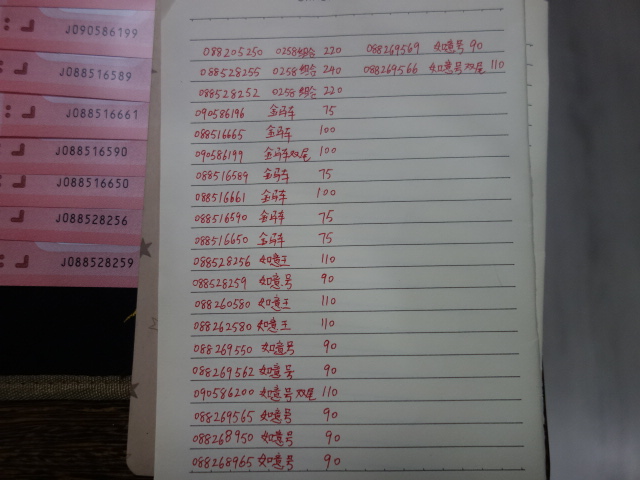 J090586199
J088516589
J088516661
J088516590
J088516650
J088528256
J088528259
088205250 0258组合 220 088269569 如意号 90
088528255 0258组合 240 088269566 如意号双尾 110
088528252 0258组合 220
090586196 金马车 75
088516665 金马车 100
090586199 金马车双尾 100
088516589 金马车 75
088516661 金马车 100
088516590 金马车 75
088516650 金马车 75
088528256 如意王 110
088528259 如意号 90
088260580 如意王 110
088262580 如意王 110
088269550 如意号 90
088269562 如意号 90
090586200 如意号双尾 110
088269565 如意号 90
088268950 如意号 90
088268965 如意号 90